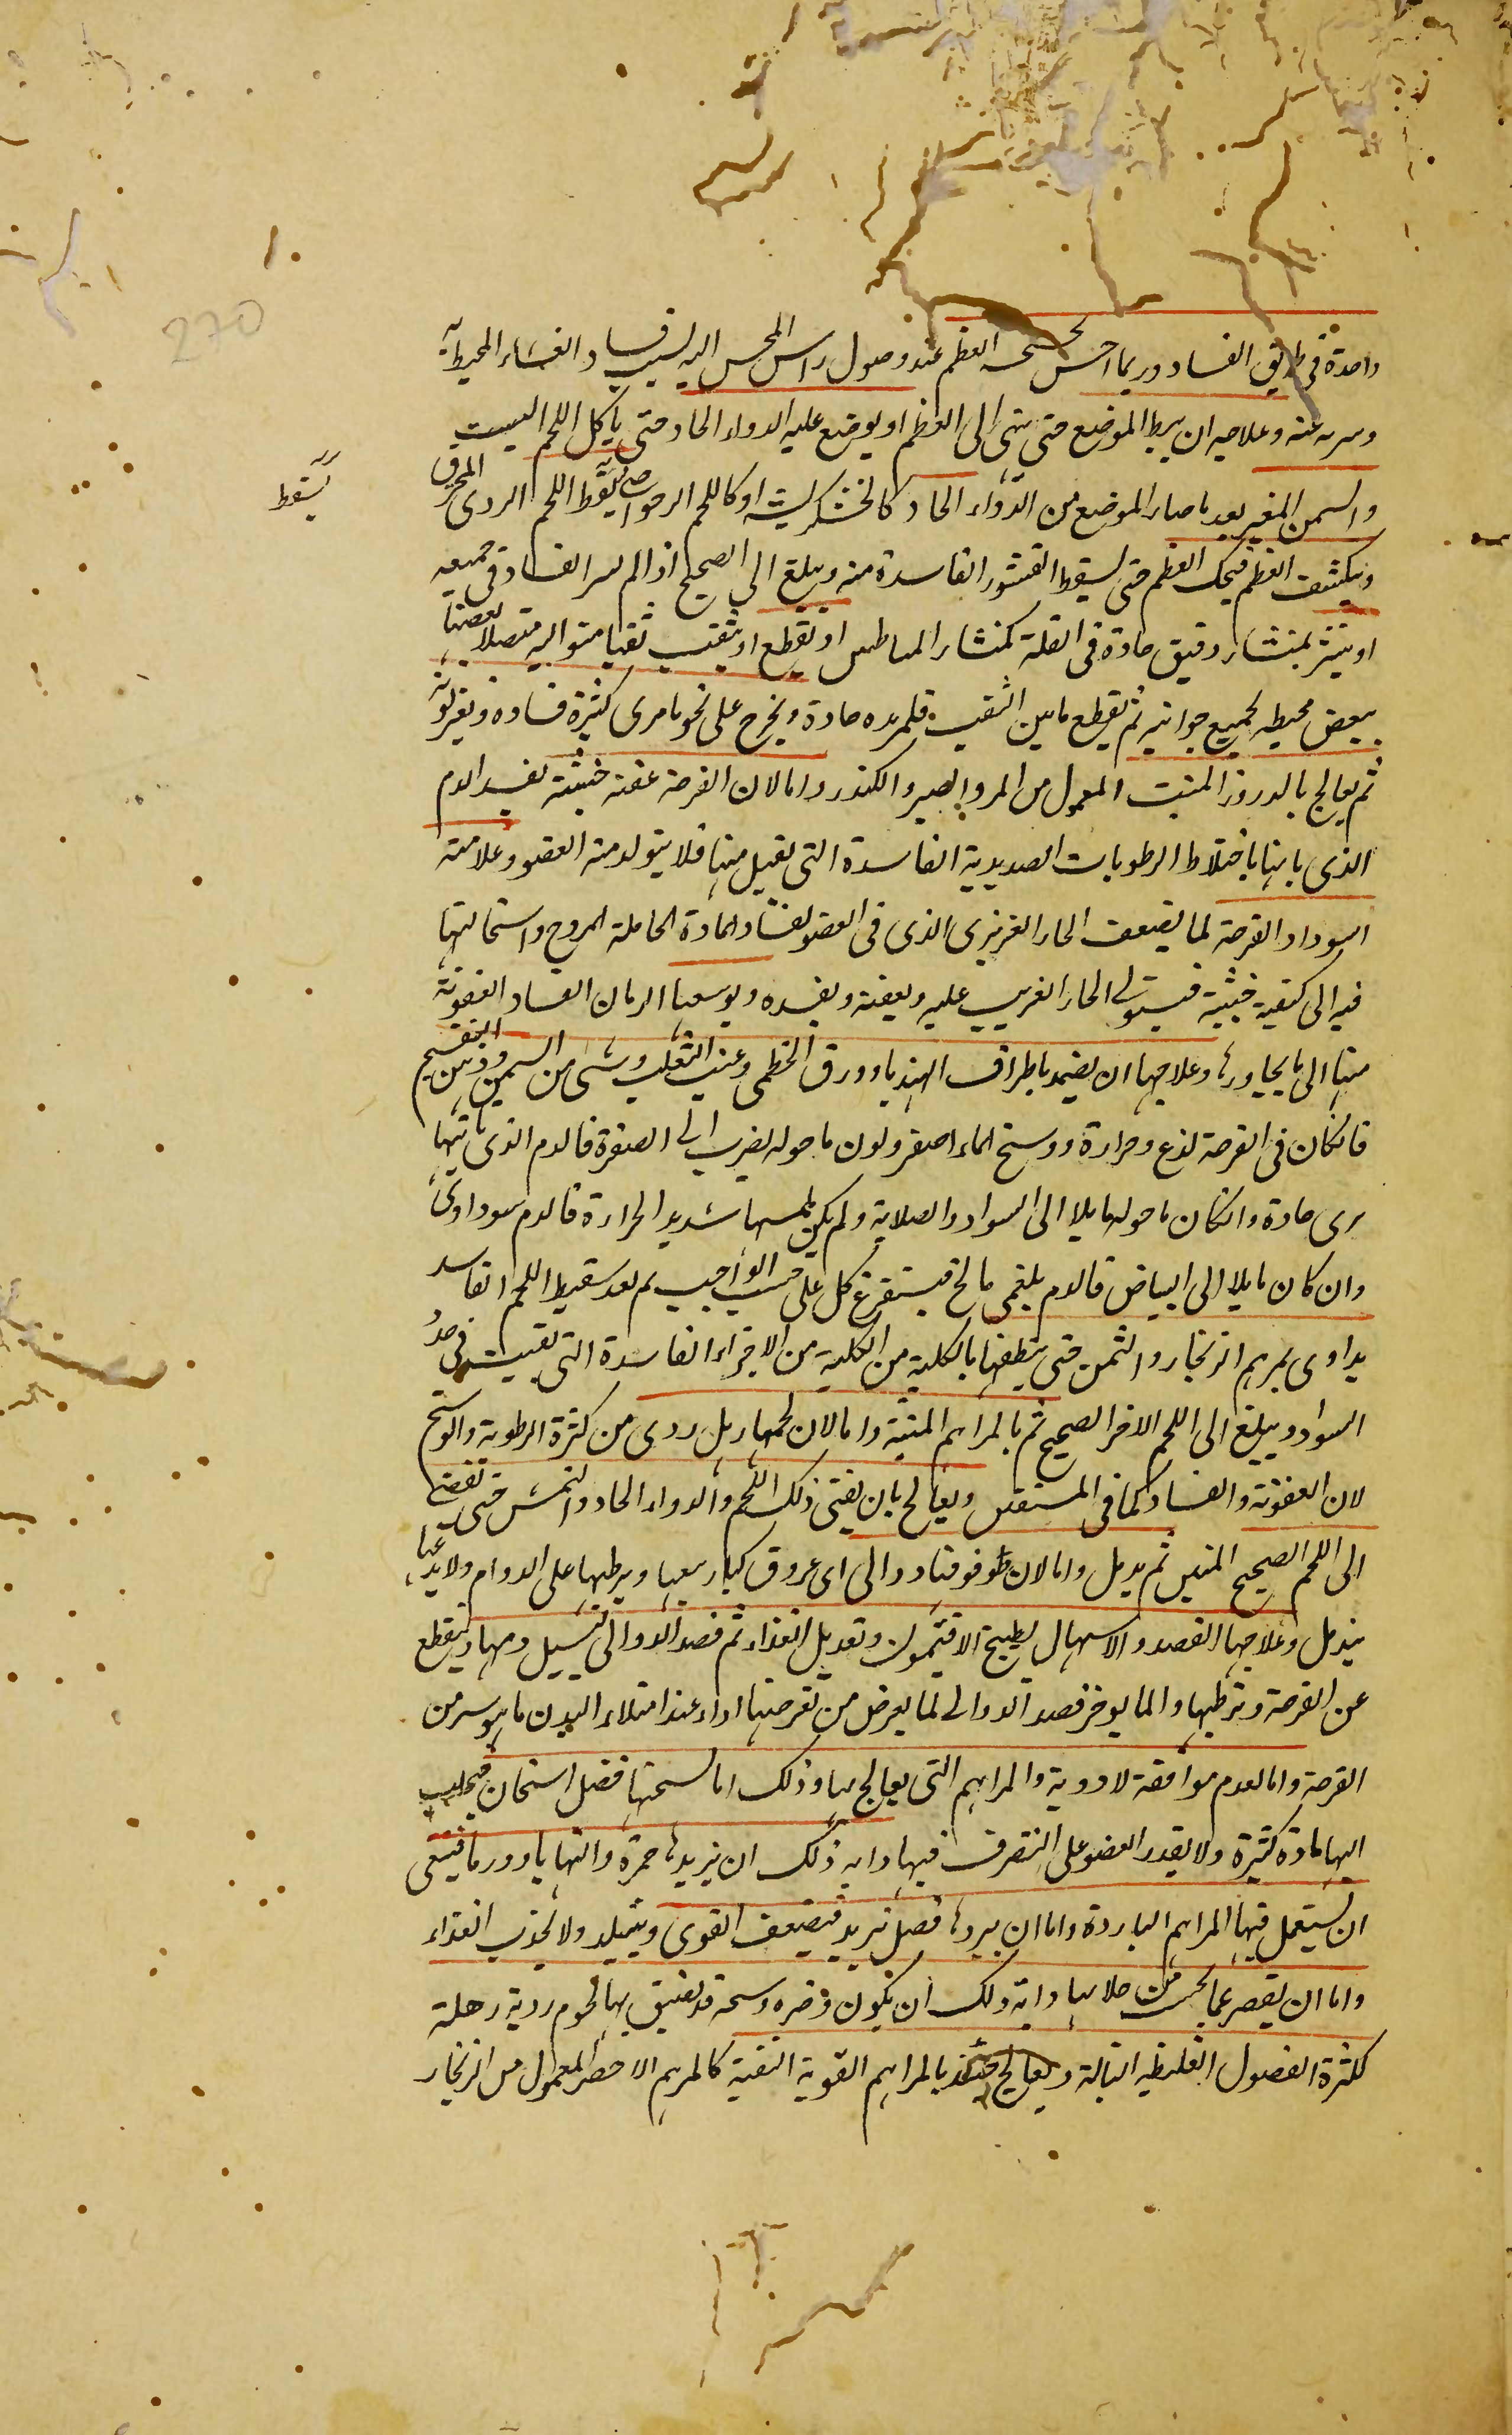 واحدة فى طريق الفساد وربما احس بخشخشه العظم عند وصول راس المحس اليه لسبب فساد الغشاء المحيط به
وسرته عنه وعلاجه ان يبط الموضع حتى ينتهى الى العظم او يوضع عليه الدواء الحاد حتى ياكل اللحم الميت
والسمن المغير بعد ما صار الموضع من الدواء الحاد كالخشكريشه او كاللحم الرخو حتى يسقط اللحم الردى المحرق
يسقط
وينكشف العظم فيحك العظم حتى يسقط القشور الفاسدة منه ويبلغ الى الصحيح اذا لم يسر الفساد فى جميعه
او ينشر بمنشار دقيق حادة فى الغلة كمنشار المشاطين او يقطع او يثقب ثقبا متواليه متصلا بعضها
ببعض محيطه بجميع جوانبه ثم يقطع ما بين الثقب بقلم حديد حادة ويخرج على نحو ما مرى كثيرة فساده وتغير لونه
ثم يعالج بالدرور المنبت المعمول من المر والصبر والكندر واما لان القرحة عفنة خبيثة يفسد الدم
الذى ياتيها باختلاط الرطوبات الصديدية الفاسدة التى يقبل منها فلا يتولد منه العضو وعلامته
اسوداد القرحة لما يضعف الحار الغريزى الذى فى العضو لفساد المادة الحاملة للروح واستحالتها
فيه الى كيفيه خبيثة فيستولى الحار الغريب عليه ويعفنه ويفسده ويوسعها الرمان الفساد العفونة
منها الى ما يجاورها وعلاجها ان يضمد باطراف الهندبا وورق الخطمى وعنب الثعلب وشى من السمن ودهن البنفسج
فانكان فى القرحة لذع وحرارة ووسخ الماء اصفر ولون ما حوله يضرب الى الصفرة فالدم الذى ياتيها
مرى حادة وانكان ما حولها مايلا الى السواد والصلابة ولم يكن لمسها شديد الحرارة فالدم سوداوى
وان كان مايلا الى البياض فالدم بلغمى مالح فيستفرغ كل على حسب الواجب ثم بعد سقوط اللحم الفاسد
يداوى بمرهم الزنجار والثمن حتى ينظفها بالكلية من الكلية من الاجزاء الفاسدة التى بقيت فى حد
السواد ويبلغ الى اللحم الاحمر الصحيح ثم بالمراهم المنبتة واما لان لحمها رهل ردى من كثرة الرطوبة والوسخ
لان العفونة والفساد كما فى المستقين ويعالج بان يفنى ذلك اللحم والدواء الحاد والنمش حتى تفضى
الى اللحم الصحيح المتين ثم يدمل واما لان فوقها دوالى اى عروق كبار يسقيها ويرطبها على الدوام ولا يدعها
يندمل وعلاجها الفصد والاسهال بطبيخ الافتيمون وتعديل الغذاء ثم فصد الدوالى ليسيل دمها وينقطع
عن القرحة وترطبها وانما يوخر فصد الدوالى لما يعرض من تقرحتها اداء عند امتلاء البدن ما هو شر من
القرحة واما لعدم موافقة لادوية والمراهم التى يعالج بها وذلك اما لسخنها فضل اسخان فيجلب
اليها مادة كثيرة ولا يقدر العضو على التصرف فيها واية ذلك ان تزيدها حمرة والتهابا وورما فينبغى
ان يستعمل فيها المراهم الباردة واما ان يبردها فضل تبريد فيضعف القوى ويتبلد ولا يجذب الغذاء
واما ان يقصر عما يجب من جلائها واية ذلك ان يكون وضره وسخة قد تعلق بها لحوم ردية رهلة
لكثرة الفضول الغليظه التبالة ويعالج حينئذ بالمراهم القوية النقية كالمرهم الاخضر المعمول من الزنجار